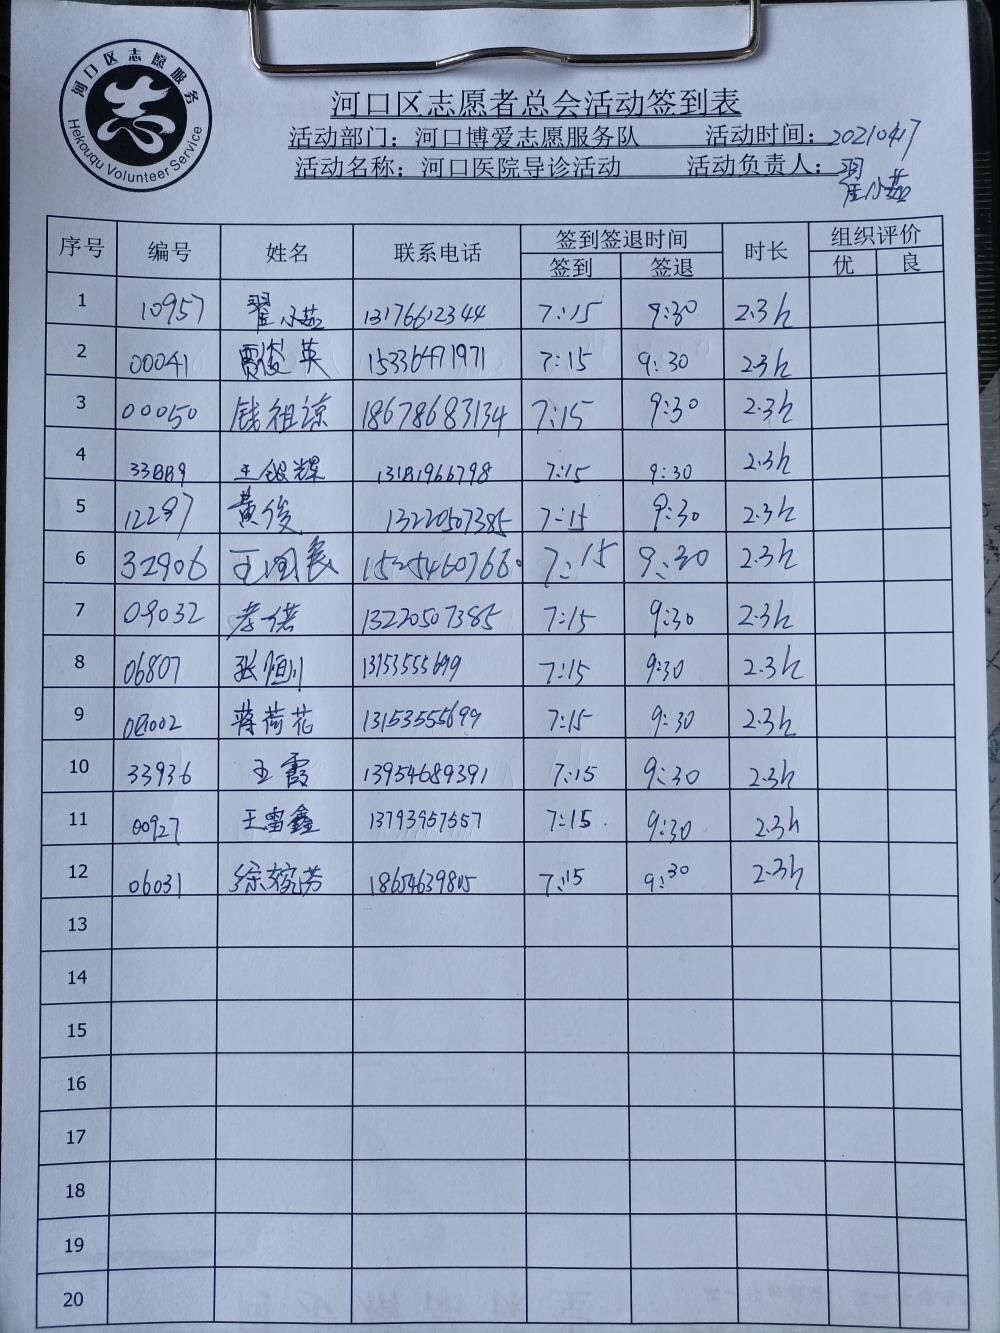 河口区志愿服务
Hekouqu Volunteer Service
河口区志愿者总会活动签到表
活动部门：河口博爱志愿服务队 活动时间：20210417
活动名称：河口医院导诊活动 活动负责人：翟小茹
序号 编号 姓名 联系电话 签到签退时间 时长 组织评价
签到 签退 优 良
1 10957 翟小茹 13176612344 7:15 9:30 2.3h
2 00041 贾俊英 15336471971 7:15 9:30 2.3h
3 00050 钱祖谅 18678683134 7:15 9:30 2.3h
4 王银辉 7:15 9:30 2.3h
5 12297 黄俊 13220507385 7:15 9:30 2.3h
6 32906 王国良 7:15 9:30 2.3h
7 09032 13220507385 7:15 9:30 2.3h
8 06807 张恒川 13153555699 7:15 9:30 2.3h
9 蒋荷花 13153555699 7:15 9:30 2.3h
10 33936 王霞 13954689391 7:15 9:30 2.3h
11 00927 王雷鑫 13793957557 7:15 9:30 2.3h
12 06031 18654639805 7:15 9:30 2.3h
13
14
15
16
17
18
19
20